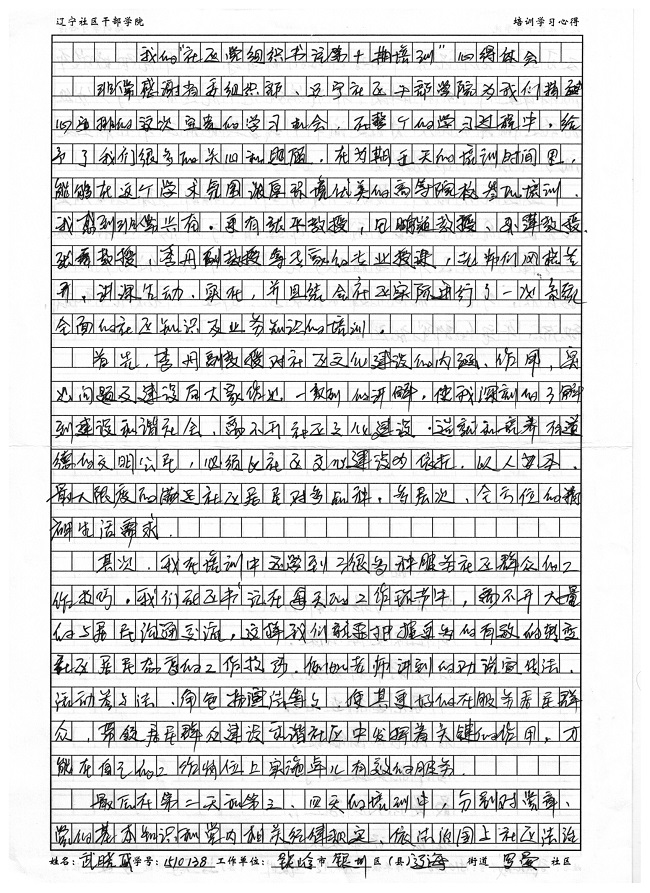 辽宁社区干部学院 培训学习心得
我的"社区党组织书记第十期培训"心得体会
非常感谢省委组织部、辽宁社区干部学院为我们精
心安排的这次宝贵的学习机会，在整个的学习过程中，给
予了我们很多的关心和照顾。在为期五天的培训时间里，
能够在这个学术氛围浓厚环境优美的高等院校参加培训，
我感到非常兴奋。更有张平教授、教授、教授、
教授，李丹副教授等专家的专业授课，老师们
讲课生动、实在，并且结合社区实际进行了一次系统
全面的社区知识及业务知识的培训。
首先，李丹副教授对社区文化建设的内涵、作用，
问题及建设向大家作出一系列的讲解，使我深刻的了解
到建设和谐社会，离不开社区文化建设。造就和培养有道
德的文明公民，必须以社区文化建设为依托，以人为本，
最大限度的满足社区居民对多品种、多层次、全方位的精
神生活需求。
其次，我在培训中还学到了很多种服务社区群众的工
作技巧。我们社区书记在每天的工作环节中，离不开大量
的与居民沟通交流，这样我们就要掌握更多的有效的转变
社区居民态度的工作技巧。例如老师讲到的劝说宣传法、
活动参与法、角色扮演法等等，使其更好的在服务居民群
众，带领居民群众建设和谐社区中发挥着关键的作用，才
能在自己的工作岗位上实施有效的服务。
最后在第二天和第三、四天的培训中，分别对党章、
党的基本知识和党内相关纪律规定、依法治国与社区法治
姓名：武 学号：1510138 工作单位：铁岭 市 银州 区（县） 辽海 街道 社区